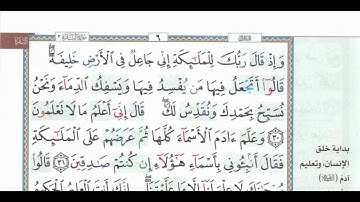 سورة البقرة ٢
٦
وَإِذْ قَالَ رَبُّكَ لِلْمَلَـٰٓئِكَةِ إِنِّى جَاعِلٌ فِى ٱلْأَرْضِ خَلِيفَةً ۖ
قَالُوٓا۟ أَتَجْعَلُ فِيهَا مَن يُفْسِدُ فِيهَا وَيَسْفِكُ ٱلدِّمَآءَ وَنَحْنُ
نُسَبِّحُ بِحَمْدِكَ وَنُقَدِّسُ لَكَ ۖ قَالَ إِنِّىٓ أَعْلَمُ مَا لَا تَعْلَمُونَ
٣٠ وَعَلَّمَ ءَادَمَ ٱلْأَسْمَآءَ كُلَّهَا ثُمَّ عَرَضَهُمْ عَلَى ٱلْمَلَـٰٓئِكَةِ
فَقَالَ أَنۢبِـُٔونِى بِأَسْمَآءِ هَـٰٓؤُلَآءِ إِن كُنتُمْ صَـٰدِقِينَ ٣١ قَالُوا۟
بداية خلق
الإنسان، وتعليم
آدم